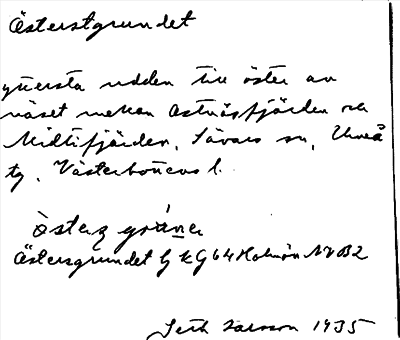 Österstgrundet
yttersta udden till öster av
näset mellan Ostnäsfjärden och
Midtifjärden, Sävars sn, Umeå
tg, Västerbottens l.
Östersgrundet G KG 64 Holmön NV B2
Seth Larsson 1935